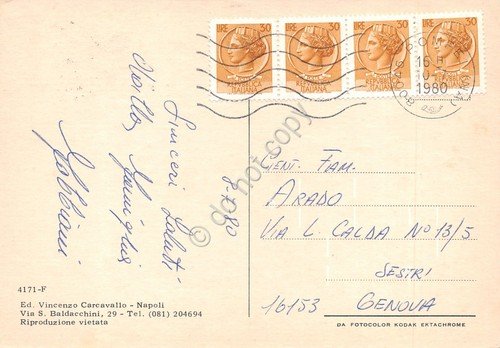 LIRE 30 LIRE 30 LIRE 30 LIRE 30
REPUBBLICA ITALIANA
REPUBBLICA ITALIANA
REPUBBLICA ITALIANA
ITALIANA
16
10
1980
8-7-80
Sinceri Saluti
famiglia
do not copy
GENT. FAM.
ARADO
VIA L CALDA No 13/5
SESTRI
16153 GENOVA
4171-F
Ed. Vincenzo Carcavallo - Napoli
Via S. Baldacchini, 29 - Tel. (081) 204694
Riproduzione vietata
DA FOTOCOLOR KODAK EKTACHROME